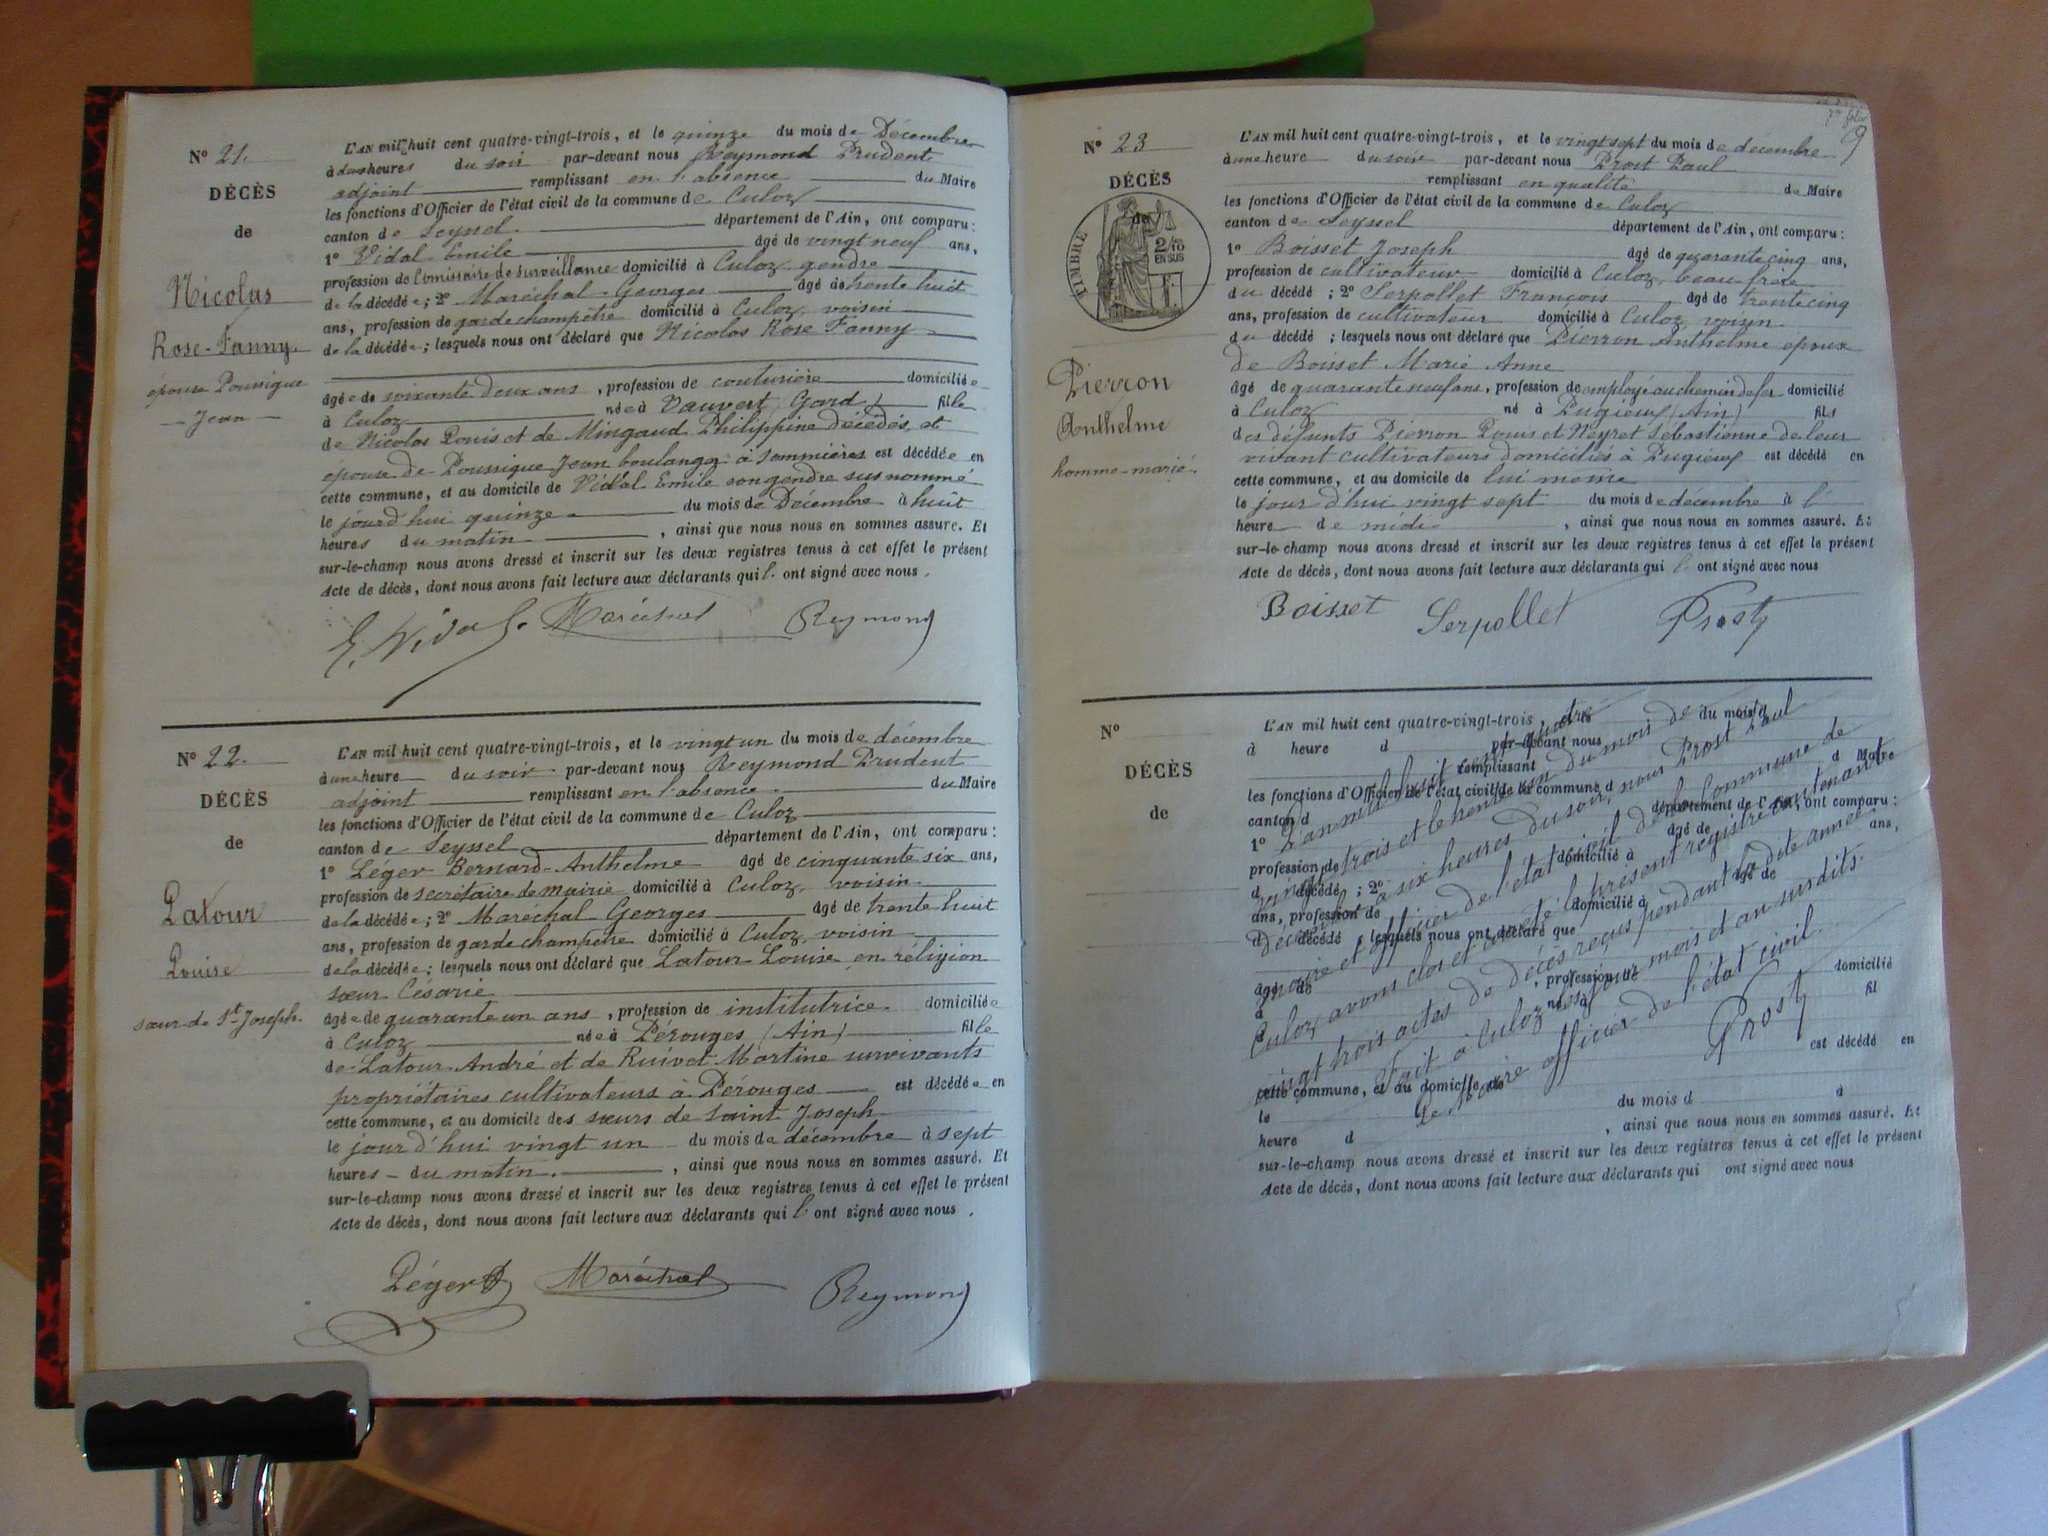 N° 21.
DÉCÈS
de
Nicolas
Rose-Fanny.
épouse Poussigue
Jean
L'AN mil huit cent quatre-vingt-trois, et le quinze du mois de Décembre
à deux heures du soir par-devant nous Reymond Prudent
adjoint remplissant en l'absence du Maire
les fonctions d'Officier de l'état civil de la commune de Culoz
canton de Seyssel département de l'Ain, ont comparu:
1° Vidal Emile âgé de vingt neuf ans,
profession de Commissaire de surveillance domicilié à Culoz gendre
de la décédée; 2° Maréchal Georges âgé de trente huit
ans, profession de garde champêtre domicilié à Culoz, voisin
de la décédée; lesquels nous ont déclaré que Nicolas Rose Fanny
âgée de soixante deux ans, profession de couturière domiciliée
à Culoz née à Vauvert (Gard) fille
de Nicolas Louis et de Mingaud Philippine décédés, et
épouse de Poussigue Jean boulanger à Sommières est décédée en
cette commune, et au domicile de Vidal Emile son gendre susnommé
le jourd'hui quinze du mois de Décembre à huit
heures du matin, ainsi que nous nous en sommes assuré. Et
sur-le-champ nous avons dressé et inscrit sur les deux registres tenus à cet effet le présent
Acte de décès, dont nous avons fait lecture aux déclarants qui l' ont signé avec nous.
E. Vidal Maréchal Reymond
N° 22.
DÉCÈS
de
Latour
Louise
sœur de St Joseph.
L'AN mil huit cent quatre-vingt-trois, et le vingt un du mois de décembre
à une heure du soir par-devant nous Reymond Prudent
adjoint remplissant en l'absence du Maire
les fonctions d'Officier de l'état civil de la commune de Culoz
canton de Seyssel département de l'Ain, ont comparu:
1° Léger Bernard-Anthelme âgé de cinquante six ans,
profession de secrétaire de mairie domicilié à Culoz, voisin
de la décédée; 2° Maréchal Georges âgé de trente huit
ans, profession de garde champêtre domicilié à Culoz, voisin
de la décédée; lesquels nous ont déclaré que Latour Louise en réligion
sœur Césarie
âgée de quarante un ans, profession de institutrice domiciliée
à Culoz née à Pérouges (Ain) fille
de Latour André et de Ruivet Martine survivants
propriétaires cultivateurs à Pérouges est décédée en
cette commune, et au domicile des sœurs de Saint Joseph
le jourd'hui vingt un du mois de décembre à sept
heures du matin, ainsi que nous nous en sommes assuré. Et
sur-le-champ nous avons dressé et inscrit sur les deux registres tenus à cet effet le présent
Acte de décès, dont nous avons fait lecture aux déclarants qui l' ont signé avec nous.
Léger Maréchal Reymond
9
N° 23
DÉCÈS
de
TIMBRE
2/10
EN SUS
Pierron
Anthelme
homme marié.
L'AN mil huit cent quatre-vingt-trois, et le vingt sept du mois de décembre
à une heure du soir par-devant nous Prost Paul
remplissant en qualité de Maire
les fonctions d'Officier de l'état civil de la commune de Culoz
canton de Seyssel département de l'Ain, ont comparu:
1° Boisset Joseph âgé de quarante cinq ans,
profession de cultivateur domicilié à Culoz, beau frère
du décédé; 2° Serpollet François âgé de trente cinq
ans, profession de cultivateur domicilié à Culoz, voisin
du décédé; lesquels nous ont déclaré que Pierron Anthelme époux
de Boisset Marie Anne
âgé de quarante neuf ans, profession de employé au chemin de fer domicilié
à Culoz né à Pugieux (Ain) fils
des défunts Pierron Louis et Neyret Sébastienne de leur
vivant cultivateurs domiciliés à Pugieux est décédé en
cette commune, et au domicile de lui même
le jourd'hui vingt sept du mois de décembre à l'
heure de midi, ainsi que nous nous en sommes assuré. Et
sur-le-champ nous avons dressé et inscrit sur les deux registres tenus à cet effet le présent
Acte de décès, dont nous avons fait lecture aux déclarants qui l' ont signé avec nous
Boisset Serpollet Prost
N°
DÉCÈS
de
L'AN mil huit cent quatre-vingt-trois, et le du mois d
à heure d par-devant nous
remplissant d Maire
les fonctions d'Officier de l'état civil de la commune d
canton d département de l'Ain, ont comparu:
1° âgé de ans,
profession de domicilié à
d décédé; 2° âgé de
ans, profession de domicilié à
d décédé; lesquels nous ont déclaré que
âgé de, profession de domicilié
à né à fil
d est décédé en
cette commune, et au domicile de
le du mois d à
heure d, ainsi que nous nous en sommes assuré. Et
sur-le-champ nous avons dressé et inscrit sur les deux registres tenus à cet effet le présent
Acte de décès, dont nous avons fait lecture aux déclarants qui ont signé avec nous
L'an mil huit cent quatre
vingt trois et le trente un du mois de
Décembre à six heures du soir, nous Prost Paul
maire et officier de l'état civil de la commune de
Culoz avons clos et arrêté le présent registre contenant
vingt trois actes de décès reçus pendant la dite année
Fait à Culoz les jour mois et an susdits.
Le Maire officier de l'état civil
Prost